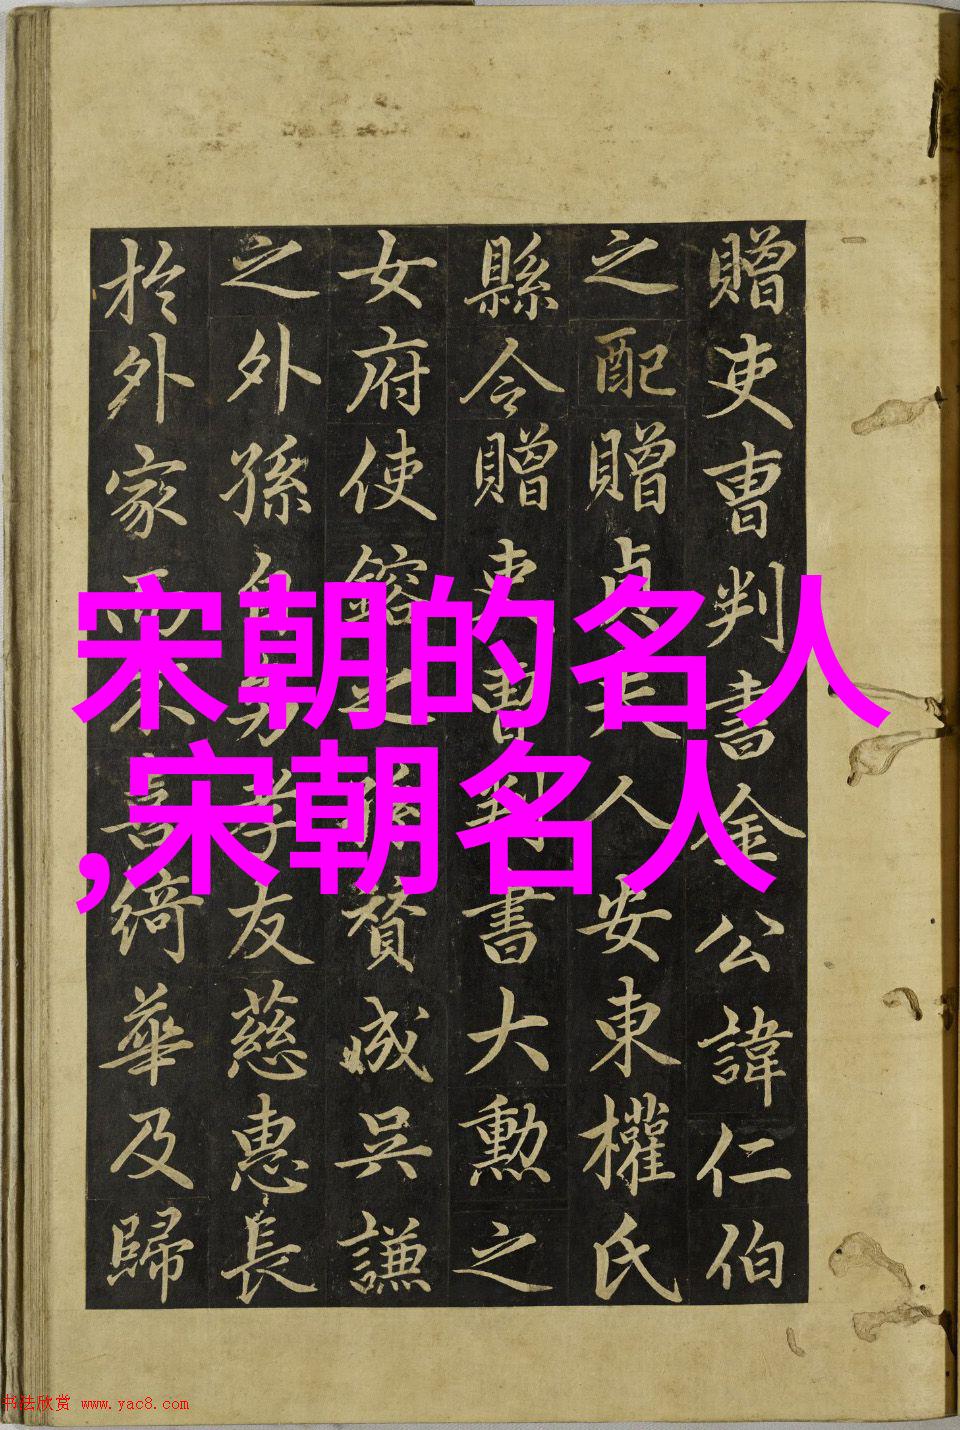 贈吏曹判書金公諱仁伯
之配贈貞夫人安東權氏
縣令贈吏曹判書大勲之
女府使鎔之孫贅成吳謙
之外孫自幼孝友慈惠長
於外家而不喜綺華及歸
宋朝的名人
,宋朝名人
书法欣赏 www.yac8.com